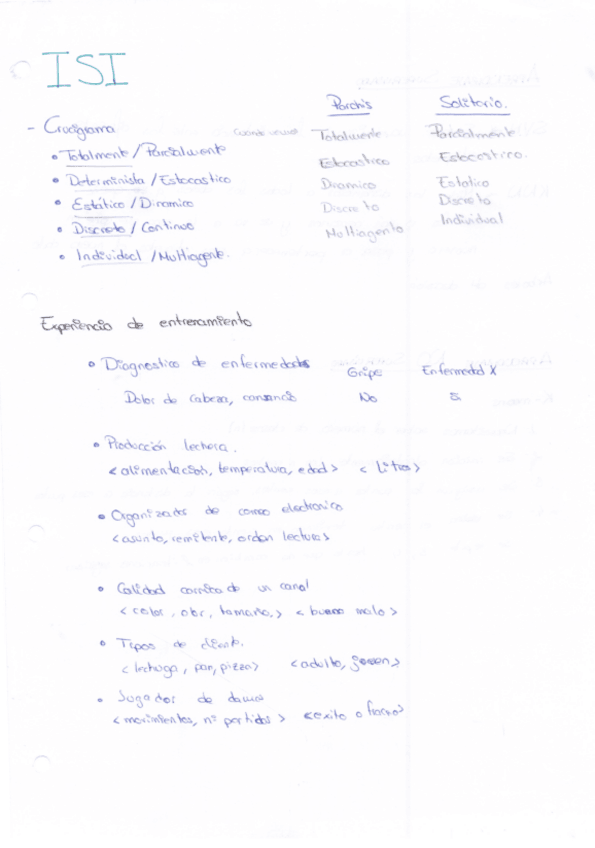 ISI
Parchis Solitario.
- Crucigrama Totalmente Parcialmente
• Totalmente / Parcialmente Estocastico Estocastico.
• Determinista / Estocastico Dinamico Estatico
• Estático / Dinamico Discreto Discreto
• Discreto / Continuo Multiagente Individual
• Individual / Multiagente.
Experiencia de entrenamiento
• Diagnostico de enfermedades Gripe Enfermedad X
Dolor de cabeza, cansancio No Si
• Producción lechera.
<alimentacion, temperatura, edad> < litros >
• Organizador de correo electronico
<asunto, remitente, orden lectura>
• Calidad carnica de un canal
< color, olor, tamaño, > < bueno malo >
• Tipos de cliente.
< lechuga, pan, pizza> <adulto, joven>
• Jugador de damas
<movimientos, nº partidas > <exito o fracaso>